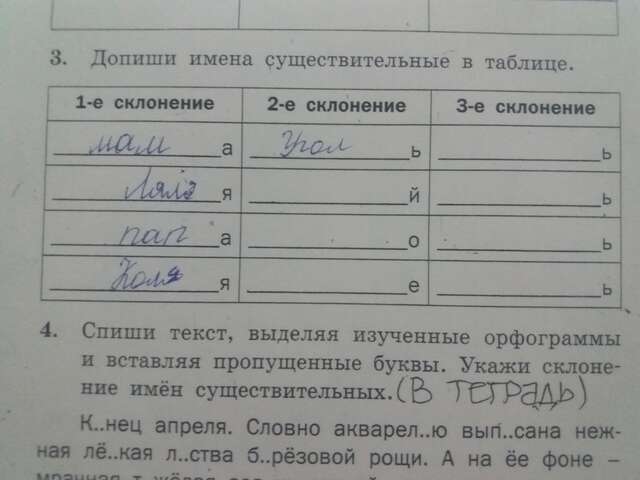 3. Допиши имена существительные в таблице.
1-е склонение 2-е склонение 3-е склонение
мам а Угол ь ь
Ляля я й ь
пап а о ь
Коля я е ь
4. Спиши текст, выделяя изученные орфограммы
и вставляя пропущенные буквы. Укажи склоне-
ние имён существительных. (В тетрадь)
К..нец апреля. Словно акварел..ю вып..сана неж-
ная лё..кая л..ства б..рёзовой рощи. А на её фоне –